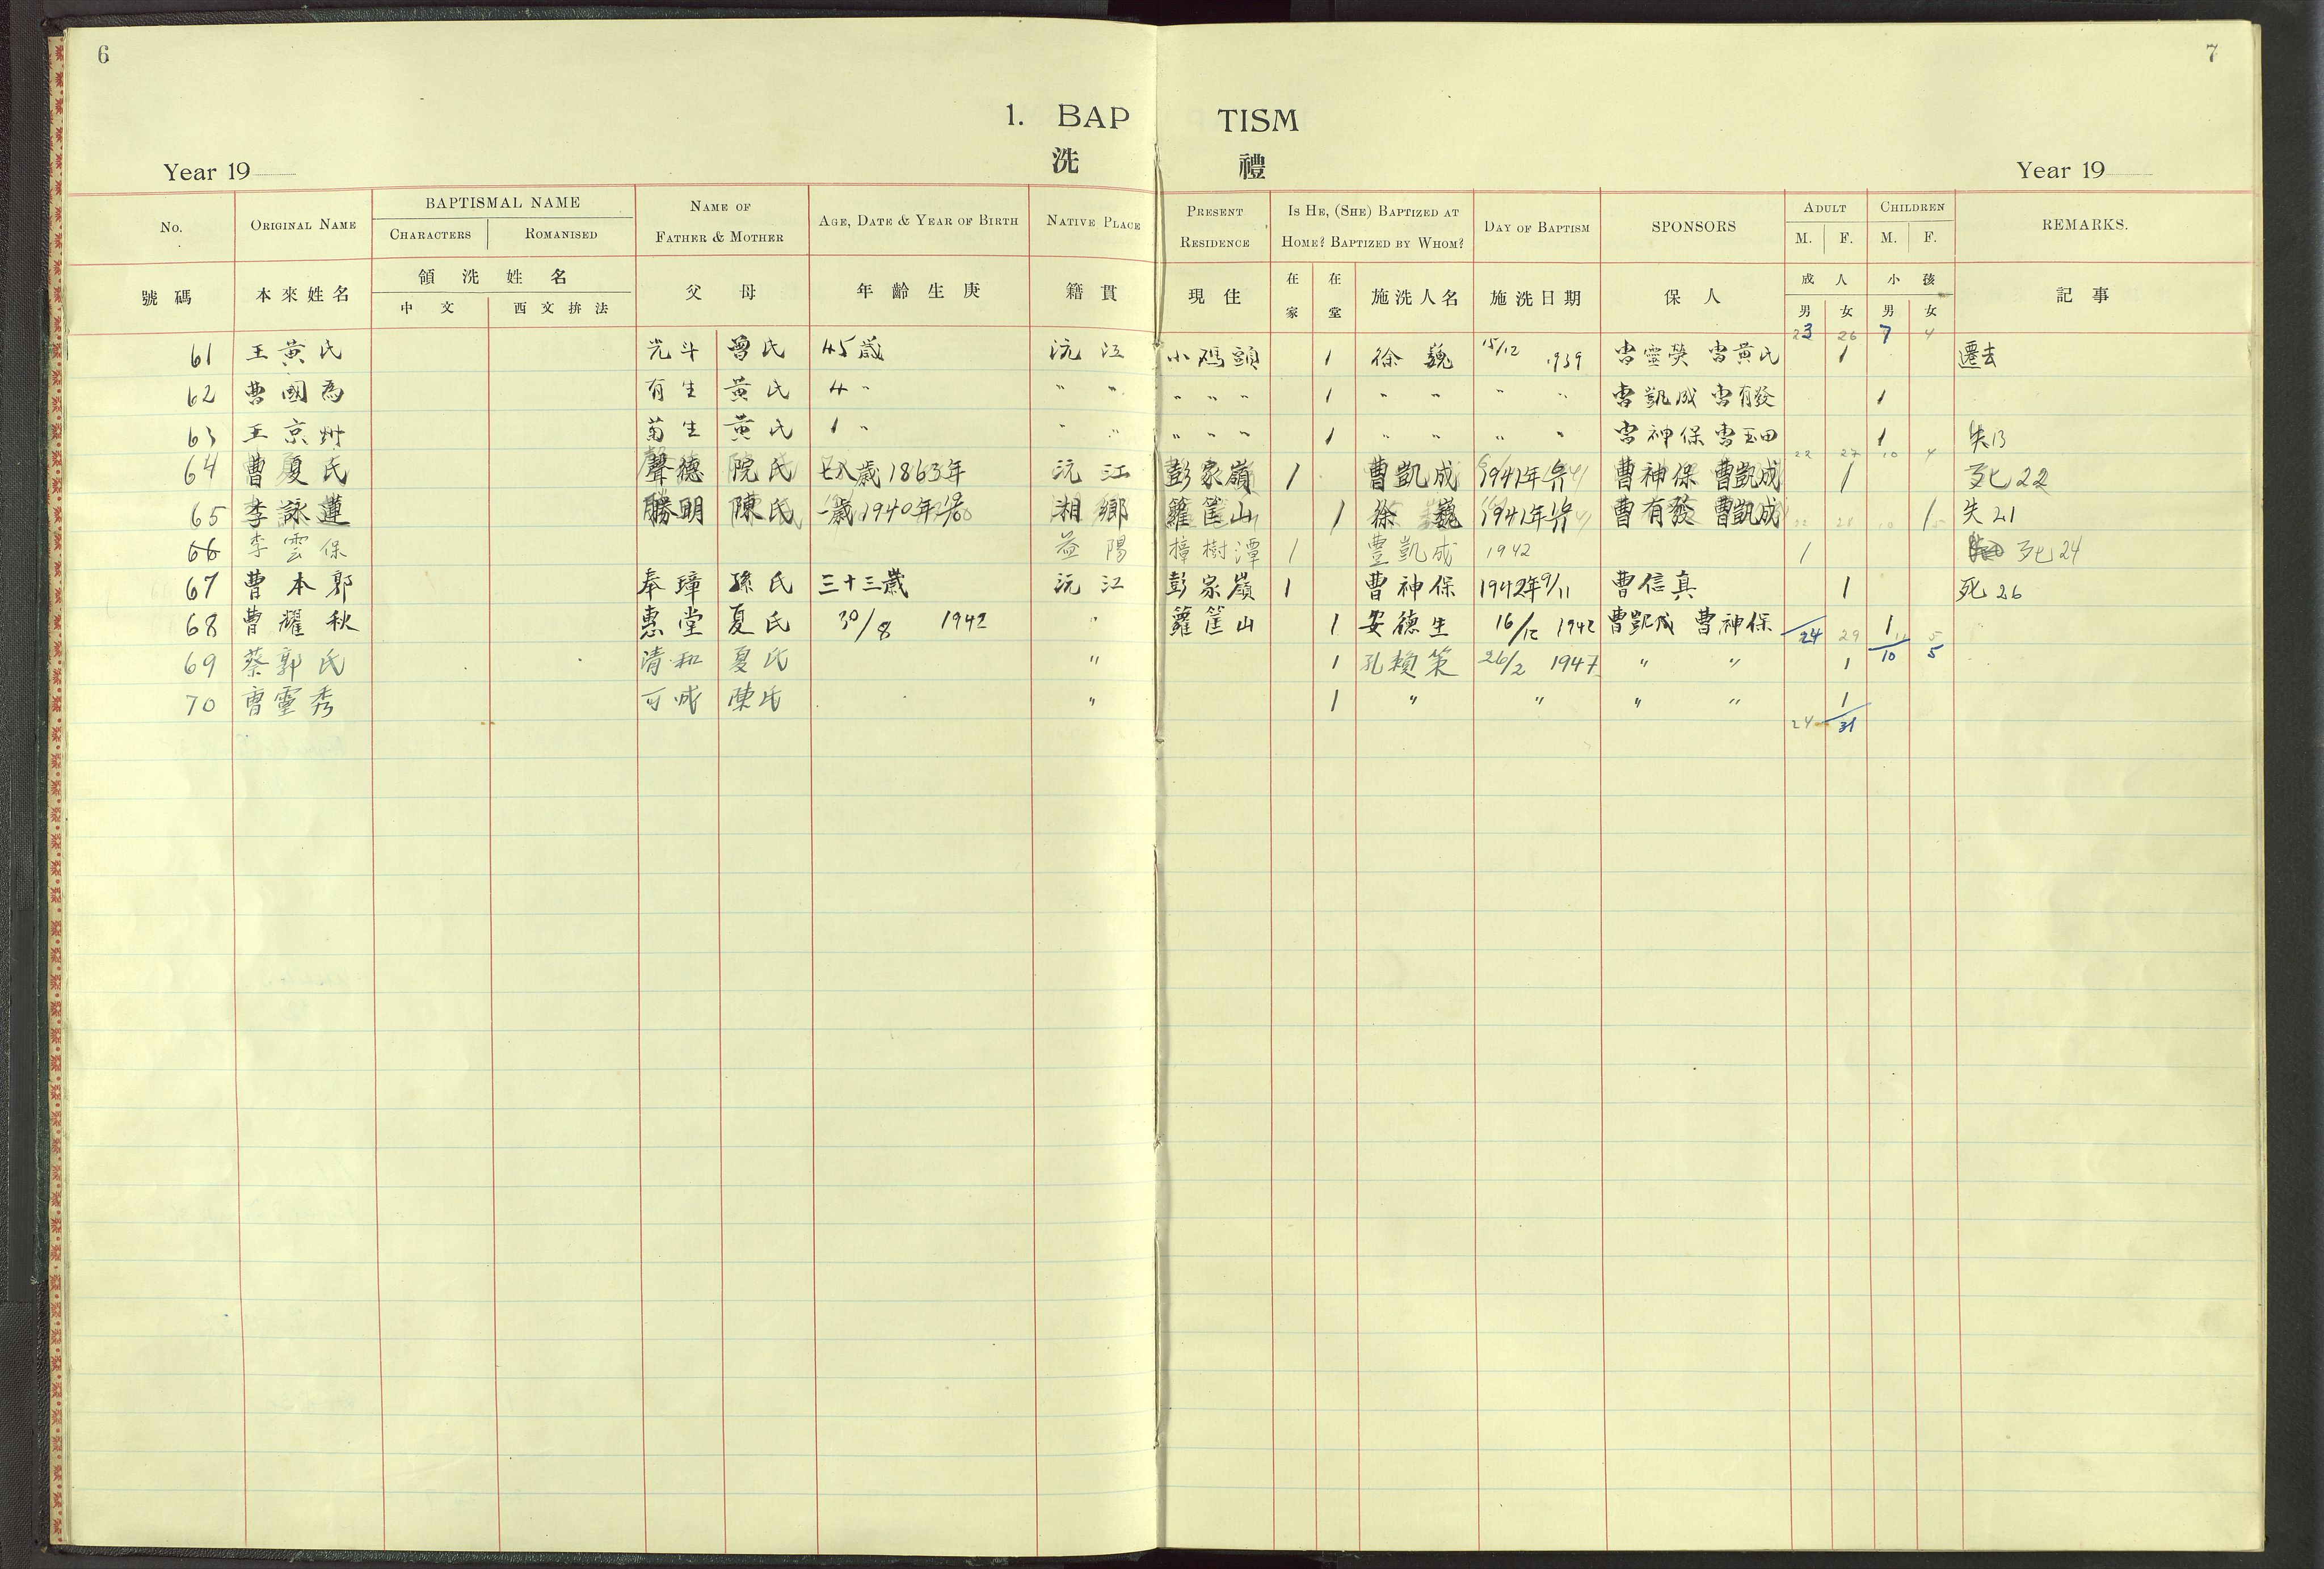 6
7
1. BAP TISM
洗 禮
Year 19
Year 19
No. ORIGINAL NAME BAPTISMAL NAME NAME OF FATHER & MOTHER AGE, DATE & YEAR OF BIRTH NATIVE PLACE PRESENT RESIDENCE IS HE, (SHE) BAPTIZED AT HOME? BAPTIZED BY WHOM? DAY OF BAPTISM SPONSORS ADULT CHILDREN REMARKS.
CHARACTERS ROMANISED M. F. M. F.
號碼 本來姓名 領洗姓名 父母 年齡生庚 籍貫 現住 在家 在堂 施洗人名 施洗日期 保人 成人 小孩 記事
中文 西文拚法 男 女 男 女
23 26 7 4
61 王黃氏 光斗 曾氏 45歲 沅江 小鸡頭 1 徐巍 15/12 1939 曺靈熒 曺黃氏 1 遷去
62 曹國為 有生 黃氏 4 〃 〃 〃 〃 〃 〃 1 〃 〃 〃 〃 曺凱成 曺有發 1
63 王京州 菊生 黃氏 1 〃 〃 〃 〃 〃 〃 1 〃 〃 〃 〃 曺神保 曺玉田 1 失13
22 27 10 4
64 曹夏氏 聲德 院氏 七八歲1863年 沅江 彭家嶺 1 曹凱成 1941年 曹神保 曹凱成 1 死22
65 李詠蓮 勝明 陳氏 一歲1940年 湘鄉 籮筐山 1 徐巍 1941年 曹有發 曹凱成 1 失21
22 28 10 5
66 李雲保 益陽 樟樹潭 1 豐凱成 1942 1 死24
67 曹本郭 奉璋 孫氏 三十三歲 沅江 彭家嶺 1 曹神保 1942年9/11 曹信真 1 死26
68 曹耀秋 惠堂 夏氏 30/8 1942 〃 籮筐山 1 安德生 16/12 1942 曹凱成 曹神保 1
24 29 11 5
69 蔡郭氏 清和 夏氏 〃 1 孔賴策 26/2 1947 〃 〃 1
10 5
70 曺靈秀 可成 陳氏 〃 1 〃 〃 〃 〃 1
24 31